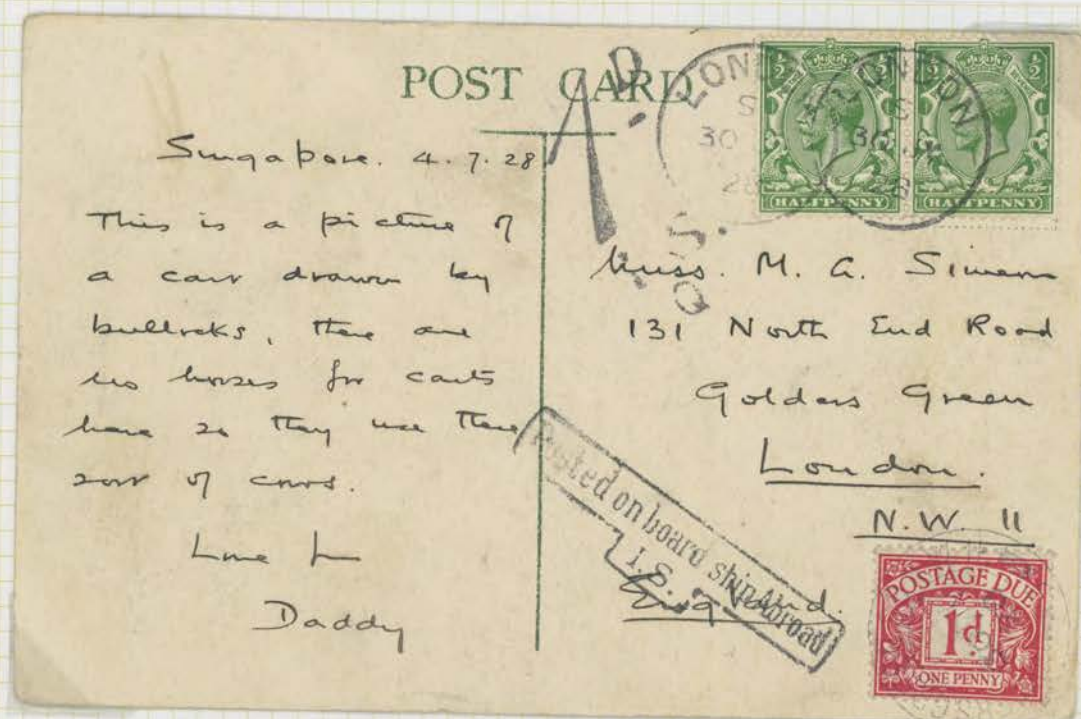 POST CARD
Singapore. 4.7.28
This is a picture of
a cart drawn by
bullocks, there are
no horses for carts
here so they use these
sort of cows.
Love from
Daddy
LONDON
30
28
LONDON
30
28
½ ½
HALFPENNY
½ ½
HALFPENNY
1D.
Miss. M. A. Simeon
131 North End Road
Golders Green
London.
N.W. 11
England.
Posted on board ship abroad
I.S.
POSTAGE DUE
1d.
ONE PENNY